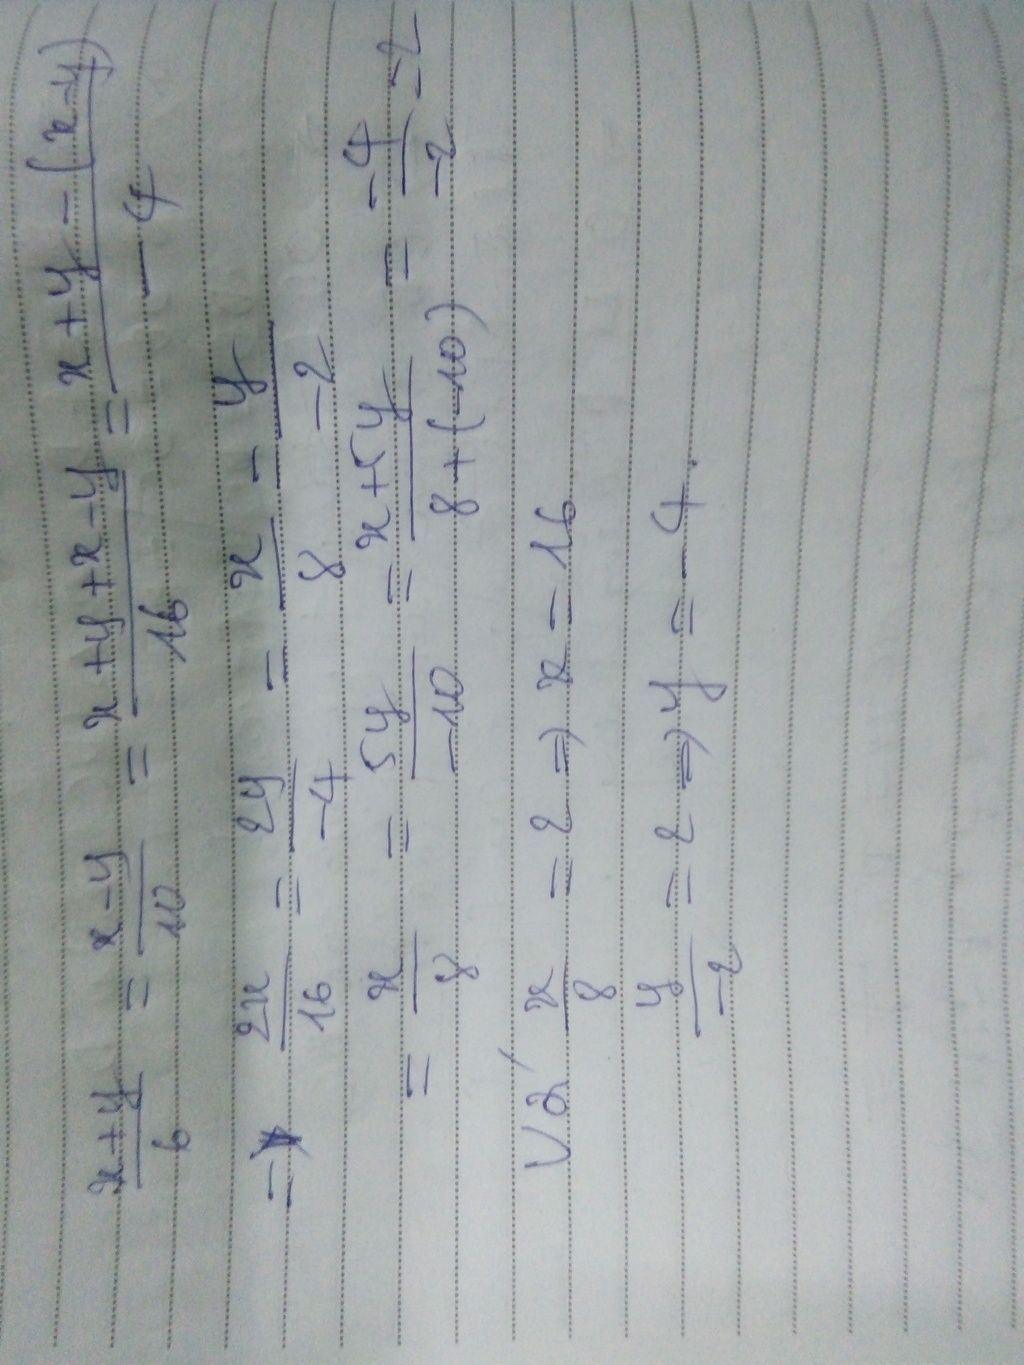 x+y/6 = x-y/10 = x+y+x-y/16 = x+y-(x-y)/-4
=> 2x/16 = 2y/-4 = x/8 = y/-2
= x/8 = 5y/-10 = x+5y/8+(-10) = -4/-2 = 2
Vậy x/8 = 2 => x = 16
y/-2 = 2 => y = -4.